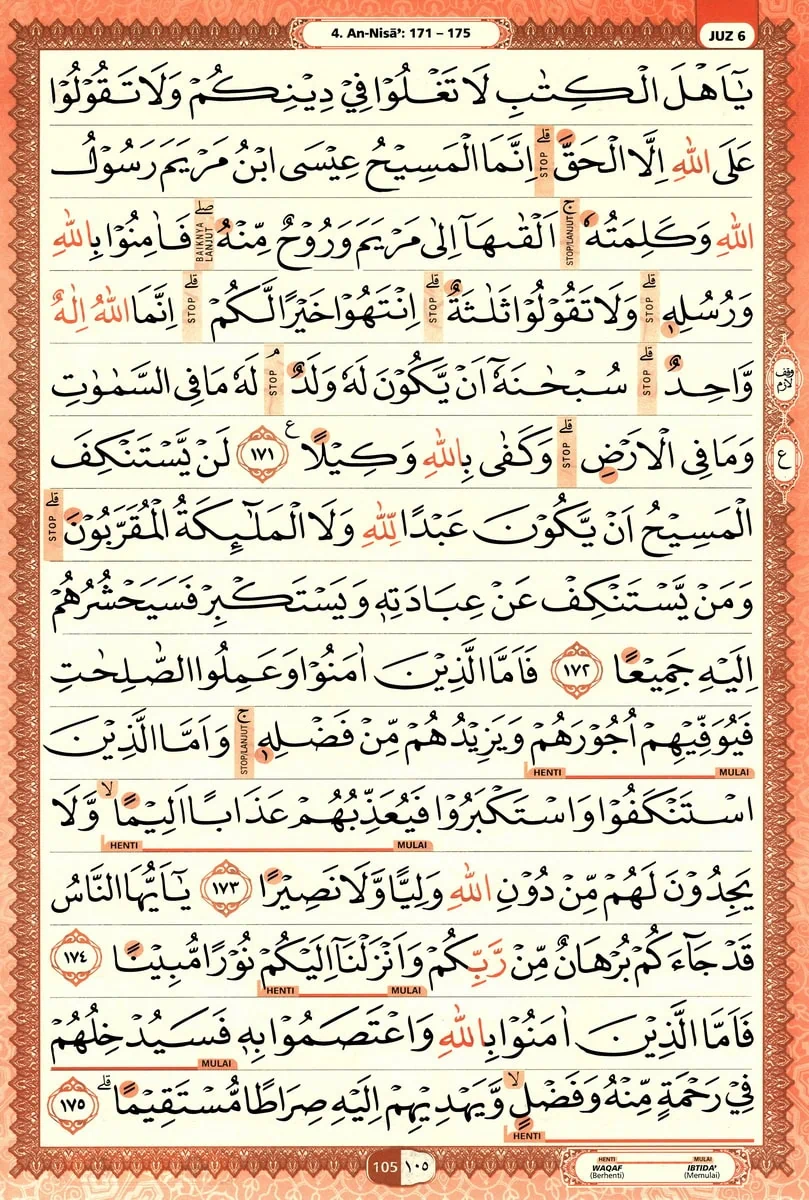 4. An-Nisā’: 171 – 175
JUZ 6
يٰٓاَهْلَ الْكِتٰبِ لَا تَغْلُوْا فِيْ دِيْنِكُمْ وَلَا تَقُوْلُوْا
عَلَى اللّٰهِ اِلَّا الْحَقَّۗ قلے STOP اِنَّمَا الْمَسِيْحُ عِيْسَى ابْنُ مَرْيَمَ رَسُوْلُ
اللّٰهِ وَكَلِمَتُهٗ ج STOP/LANJUT اَلْقٰىهَآ اِلٰى مَرْيَمَ وَرُوْحٌ مِّنْهُ صلے BAIKNYA LANJUT فَاٰمِنُوْا بِاللّٰهِ
وَرُسُلِهٖ قلے STOP وَلَا تَقُوْلُوْا ثَلٰثَةٌ قلے STOP اِنْتَهُوْا خَيْرًا لَّكُمْ قلے STOP اِنَّمَا اللّٰهُ اِلٰهٌ
وَّاحِدٌ قلے STOP سُبْحٰنَهٗٓ اَنْ يَّكُوْنَ لَهٗ وَلَدٌ م STOP لَهٗ مَا فِى السَّمٰوٰتِ
وَمَا فِى الْاَرْضِ قلے STOP وَكَفٰى بِاللّٰهِ وَكِيْلًا ع ١٧١ لَنْ يَّسْتَنْكِفَ
الْمَسِيْحُ اَنْ يَّكُوْنَ عَبْدًا لِّلّٰهِ وَلَا الْمَلٰۤىِٕكَةُ الْمُقَرَّبُوْنَ قلے STOP
وَمَنْ يَّسْتَنْكِفْ عَنْ عِبَادَتِهٖ وَيَسْتَكْبِرْ فَسَيَحْشُرُهُمْ
اِلَيْهِ جَمِيْعًا ١٧٢ فَاَمَّا الَّذِيْنَ اٰمَنُوْا وَعَمِلُوا الصّٰلِحٰتِ
فَيُوَفِّيْهِمْ اُجُوْرَهُمْ وَيَزِيْدُهُمْ مِّنْ فَضْلِهٖ ج STOP/LANJUT وَاَمَّا الَّذِيْنَ
MULAI HENTI
اسْتَنْكَفُوْا وَاسْتَكْبَرُوْا فَيُعَذِّبُهُمْ عَذَابًا اَلِيْمًا لا وَّلَا
MULAI HENTI
يَجِدُوْنَ لَهُمْ مِّنْ دُوْنِ اللّٰهِ وَلِيًّا وَّلَا نَصِيْرًا ١٧٣ يٰٓاَيُّهَا النَّاسُ
قَدْ جَاۤءَكُمْ بُرْهَانٌ مِّنْ رَّبِّكُمْ وَاَنْزَلْنَآ اِلَيْكُمْ نُوْرًا مُّبِيْنًا ١٧٤
MULAI HENTI
فَاَمَّا الَّذِيْنَ اٰمَنُوْا بِاللّٰهِ وَاعْتَصَمُوْا بِهٖ فَسَيُدْخِلُهُمْ
MULAI
فِيْ رَحْمَةٍ مِّنْهُ وَفَضْلٍ لا وَّيَهْدِيْهِمْ اِلَيْهِ صِرَاطًا مُّسْتَقِيْمًا قلے ١٧٥
HENTI
وقف لازم
ع
105 ١٠٥
HENTI MULAI
WAQAF IBTIDA’
(Berhenti) (Memulai)